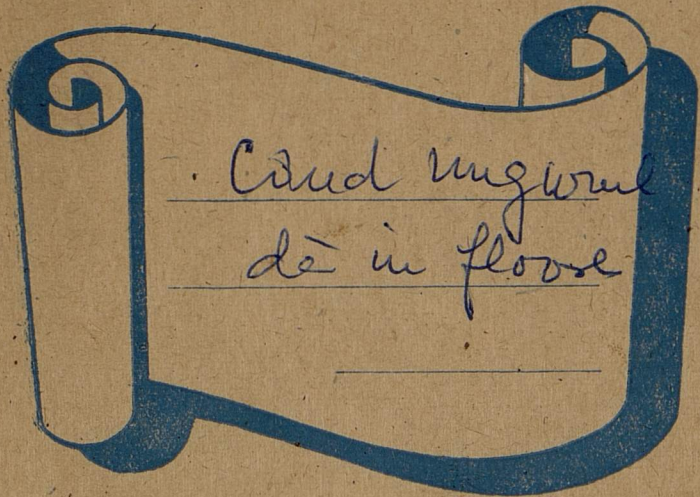 Când mugurul
dă în floare